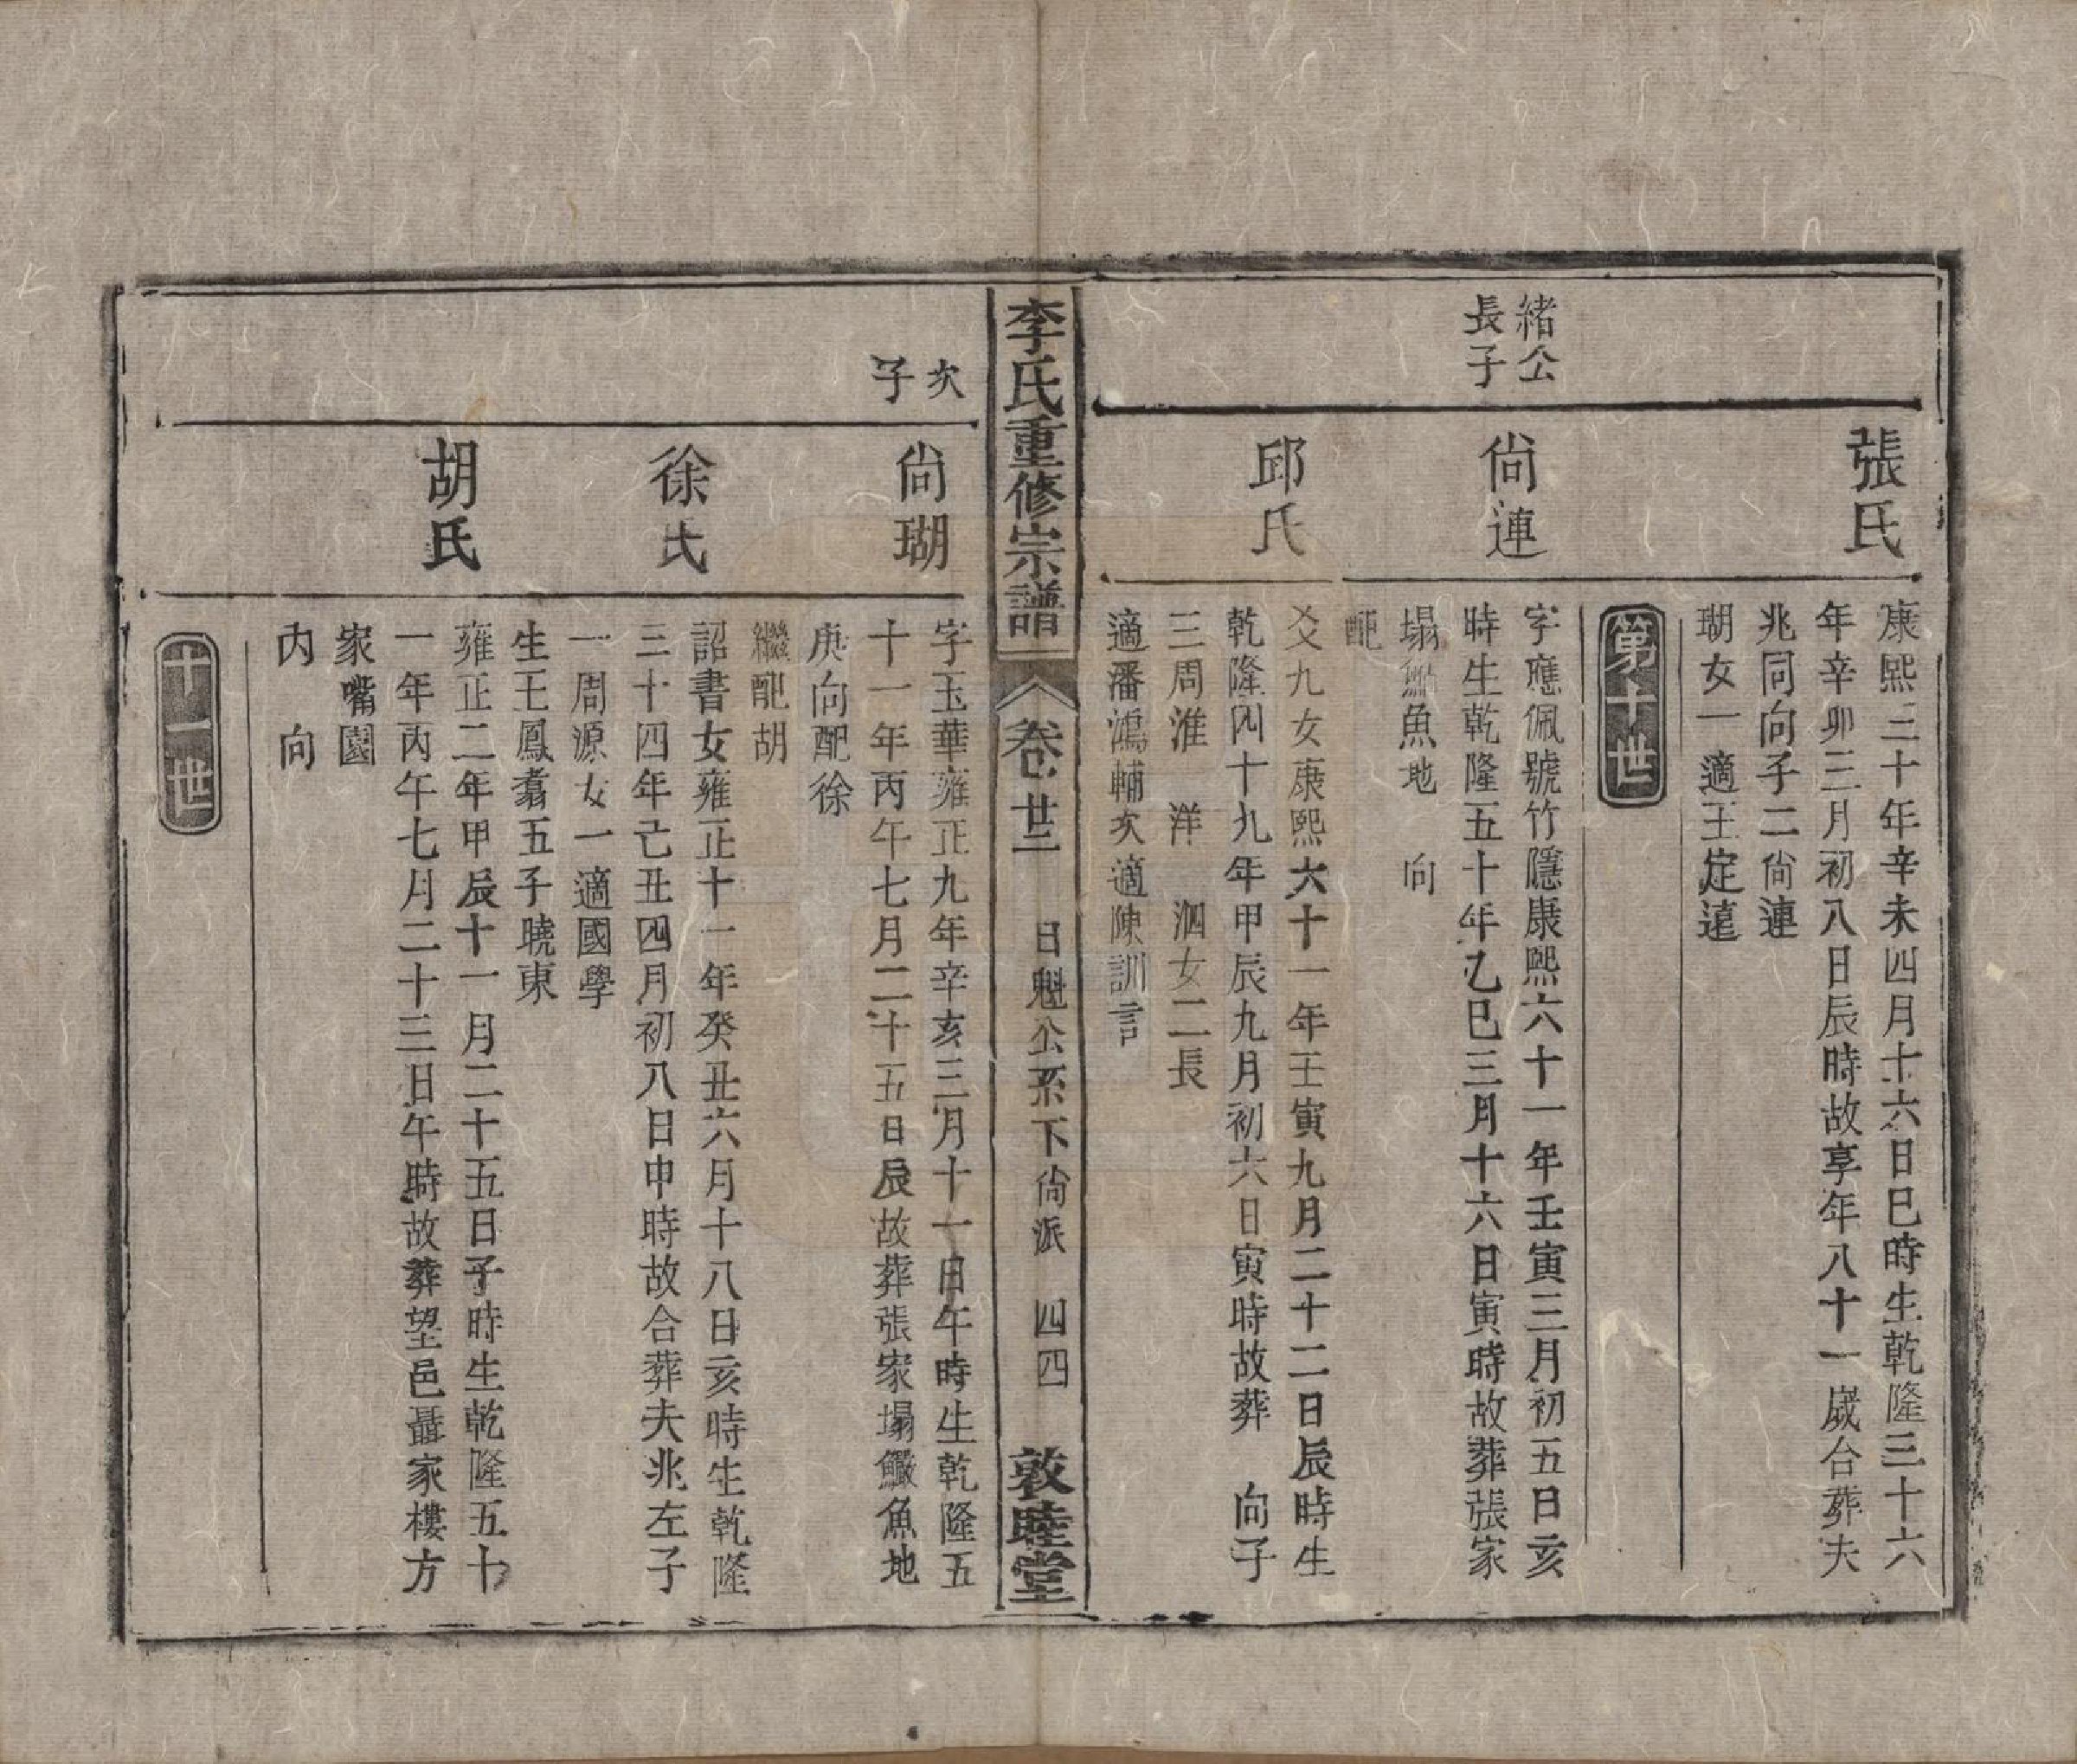 張氏
康熙三十年辛未四月十六日巳時生乾隆三十六
年辛卯三月初八日辰時故享年八十一歲合葬夫
兆同向子二尙連
瑚女一適王定遠
第十世
緒公
長子
尙連
字應佩號竹隱康熙六十一年壬寅三月初五日亥
時生乾隆五十年乙巳三月十六日寅時故葬張家
塌魚地 向
配
邱氏
爻九女康熙六十一年壬寅九月二十二日辰時生
乾隆四十九年甲辰九月初六日寅時故葬 向子
三周淮 洋 泗女二長
適潘鴻輔次適陳訓言
李氏重修宗譜 卷廿三 日魁公系下尙派 四四 敦睦堂
次
子
尙瑚
字玉華雍正九年辛亥三月十一日午時生乾隆五
十一年丙午七月二十五日辰故葬張家塌鱖魚地
庚向配徐
繼配胡
徐氏
詔書女雍正十一年癸丑六月十八日亥時生乾隆
三十四年己丑四月初八日申時故合葬夫兆左子
一周源女一適國學
生王鳳翥五子曉東
胡氏
雍正二年甲辰十一月二十五日子時生乾隆五十
一年丙午七月二十三日午時故葬望邑聶家樓方
家嘴園
內 向
十一世